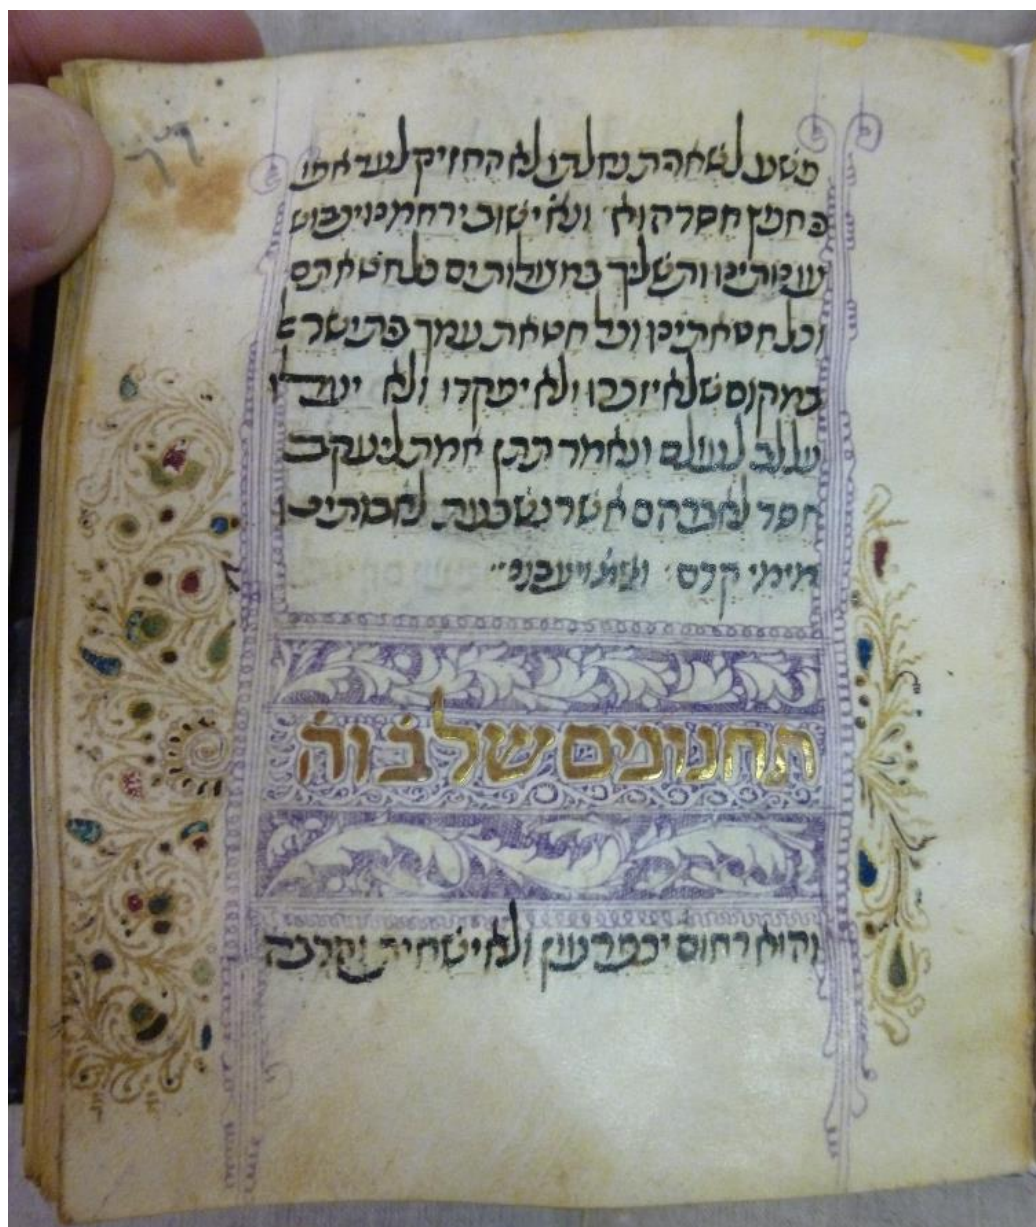 פשע לשארית נחלתו לא החזיק לעד אפו
כי חפץ חסד הוא ונא' ישוב ירחמנו יכבוש
עונותינו ותשליך במצולות ים כל חטאתם
וכל חטאתינו וכל חטאת עמך בית ישראל
במקום שלא יזכרו ולא יפקדו ולא יעלו
על לב לעולם ונאמר תתן אמת ליעקב
חסד לאברהם אשר נשבעת לאבותינו
מימי קדם
תחנונים של ב' וה'
והוא רחום יכפר עון ולא ישחית והרבה